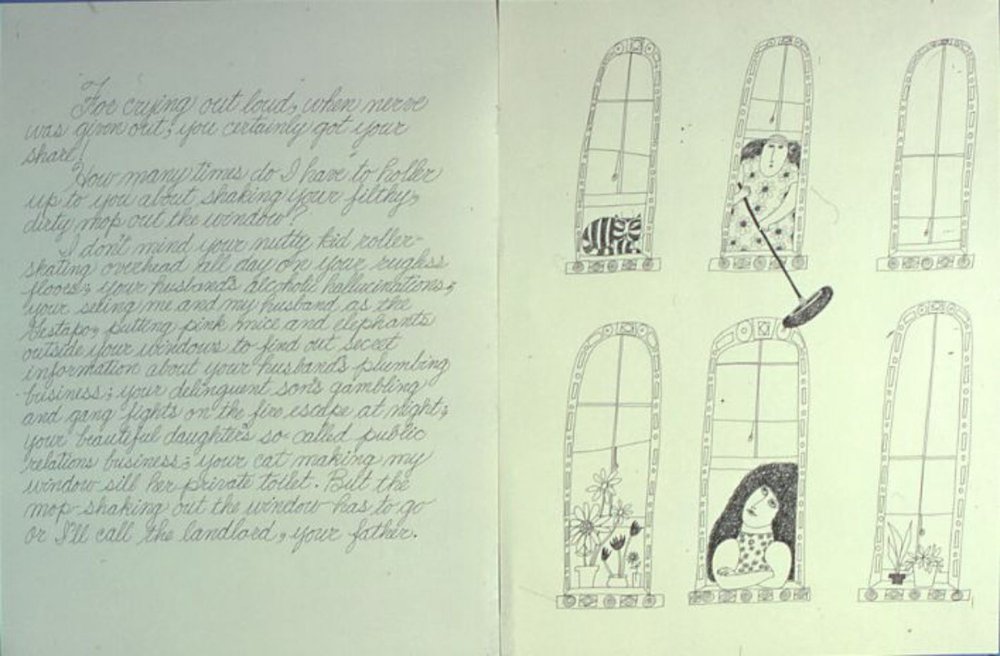 "For crying out loud, when nerve
was given out, you certainly got your
share!
"How many times do I have to holler
up to you about shaking your filthy,
dirty mop out the window?
I don't mind your nutty kid roller-
skating overhead all day on your rugless
floors; your husband's alcoholic hallucinations;
your seeing me and my husband as the
Gestapo, putting pink mice and elephants
outside your windows to find out secret
information about your husband's plumbing
business; your delinquent son's gambling
and gang fights on the fire escape at night;
your beautiful daughter's so-called public
relations business; your cat making my
window sill her private toilet. But the
mop-shaking out the window has to go
or I'll call the landlord, your father.